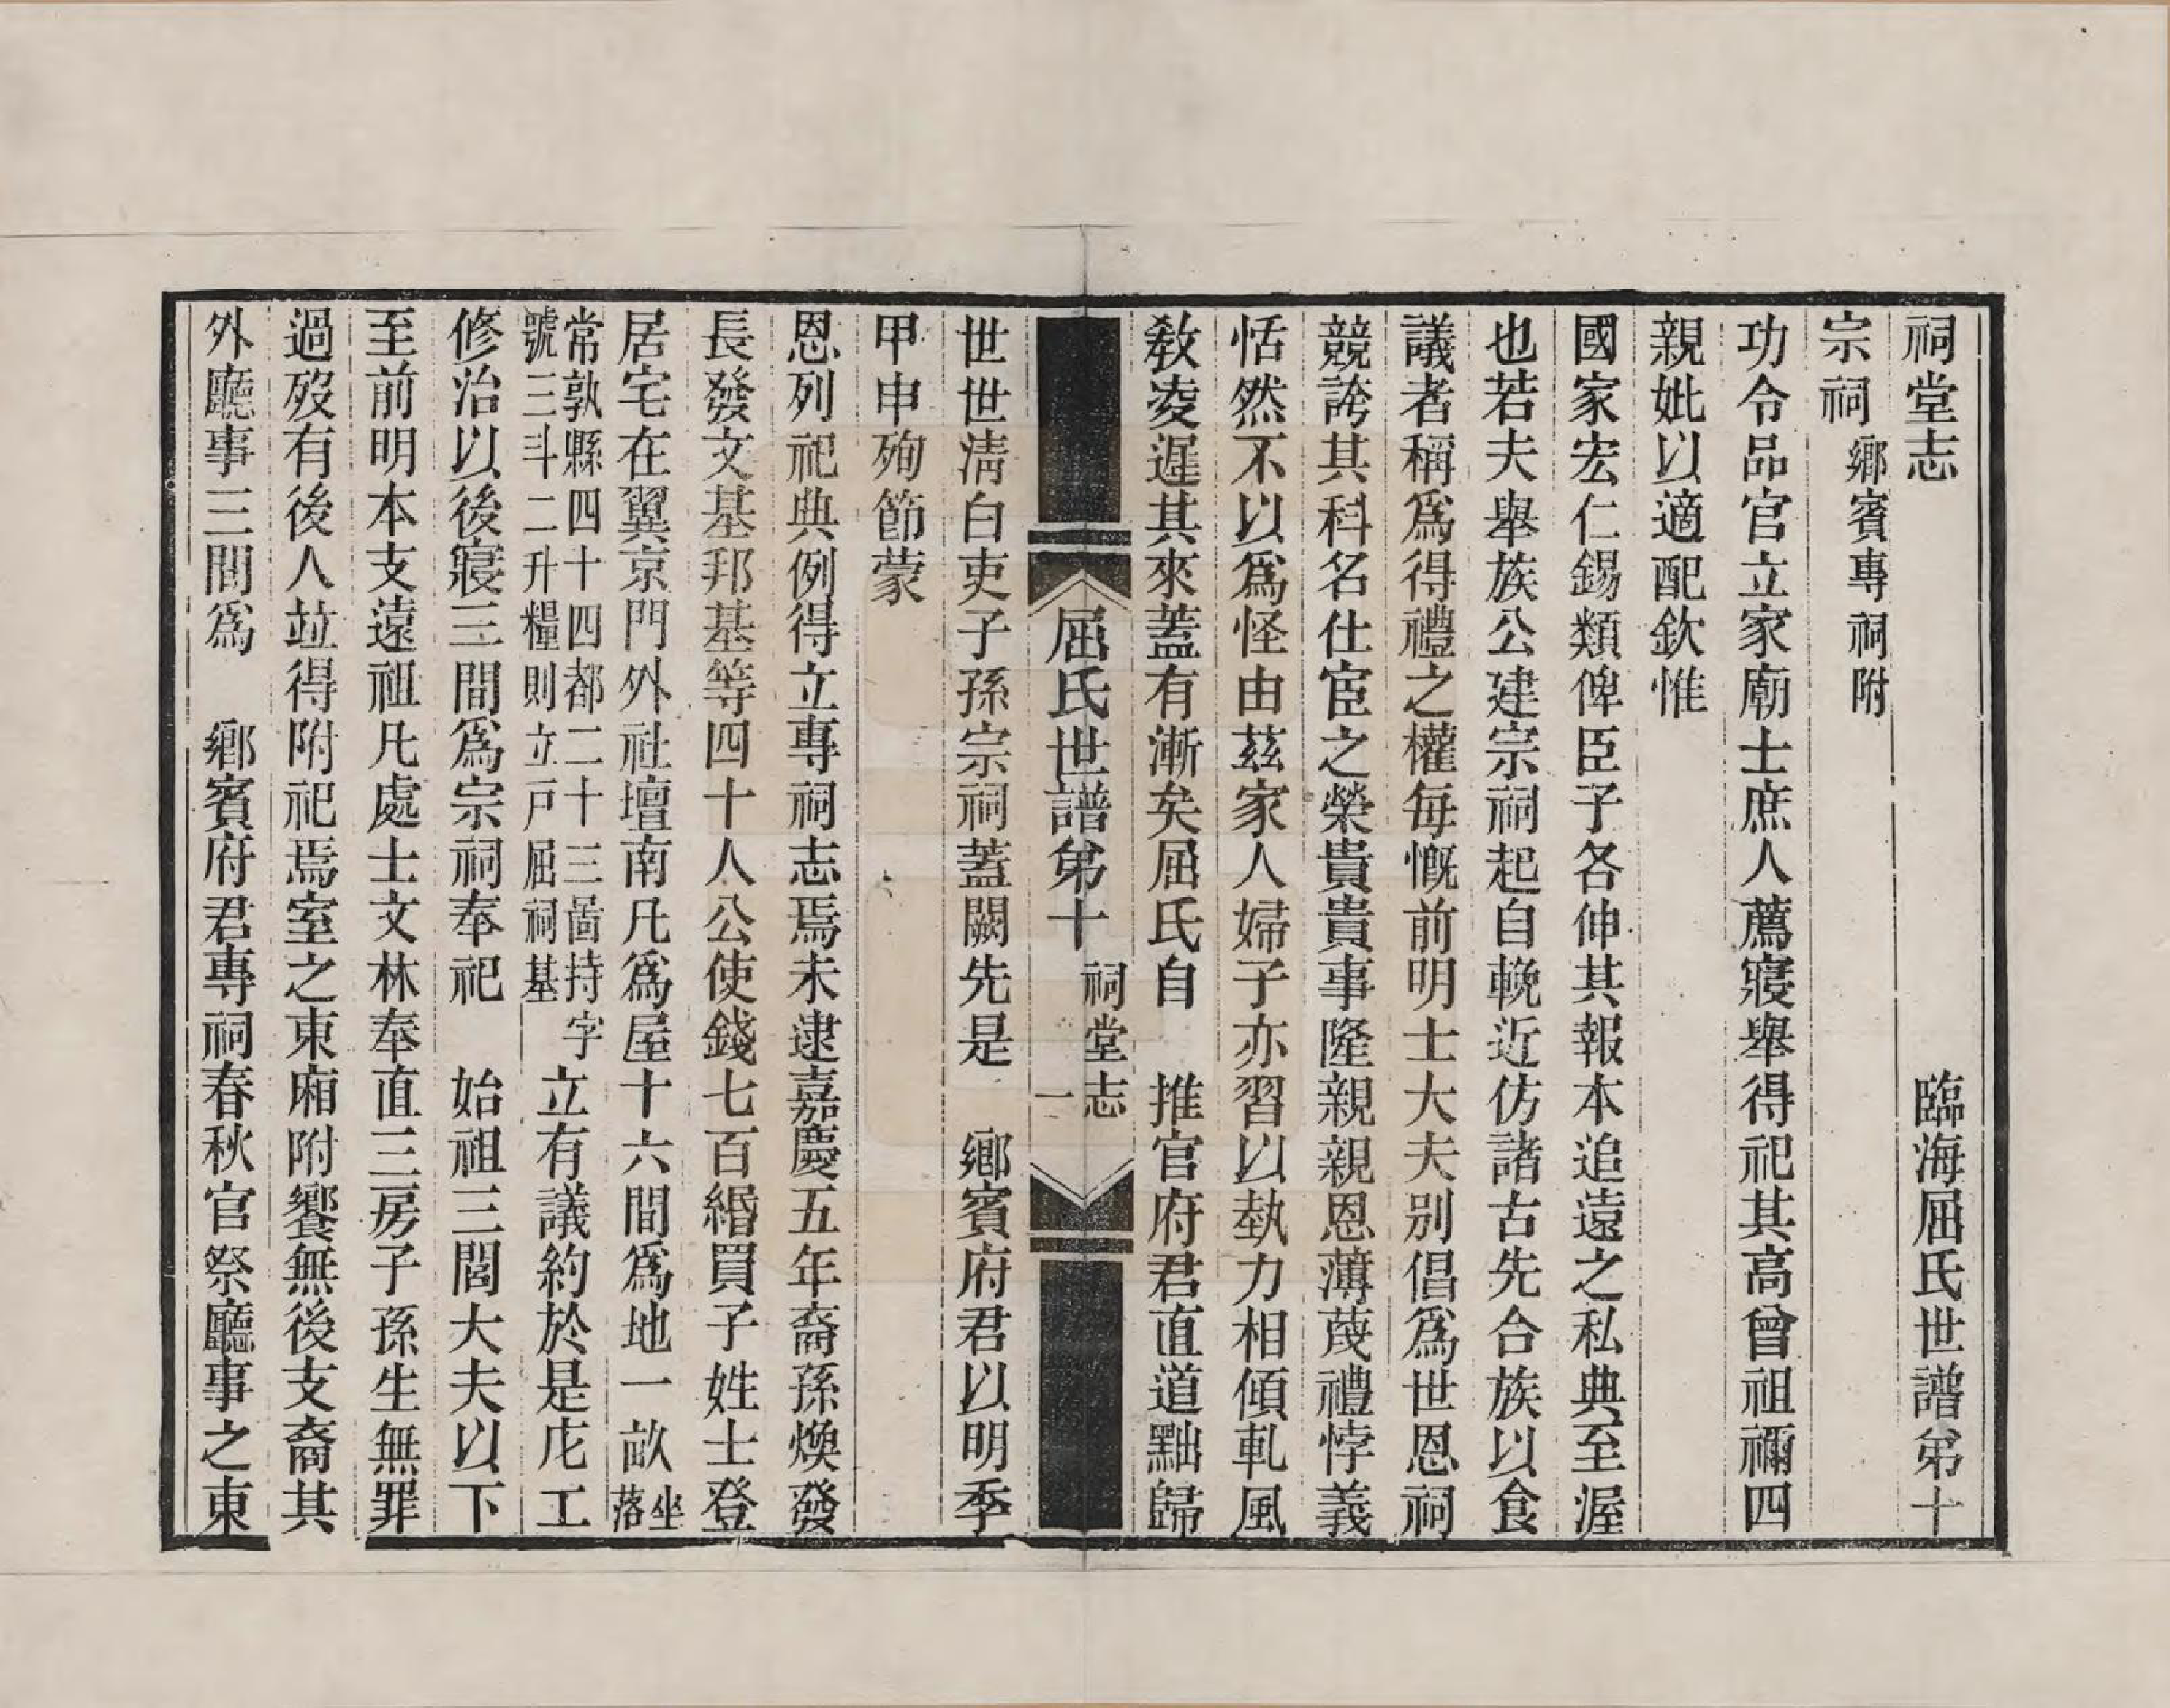 祠堂志　臨海屈氏世譜弟十
宗祠　鄉賓專祠附
功令品官立家廟士庶人薦寢舉得祀其高曾祖禰四
親妣以適配欽惟
國家宏仁錫類俾臣子各伸其報本追遠之私典至渥
也若夫舉族公建宗祠起自輓近仿諸古先合族以食
議者稱爲得禮之權每慨前明士大夫別倡爲世恩祠
競誇其科名仕宦之榮貴貴事隆親親恩薄蔑禮悖義
恬然不以爲怪由茲家人婦子亦習以埶力相傾軋風
敎凌遲其來蓋有漸矣屈氏自　推官府君直道黜歸
屈氏世譜弟十　祠堂志　一
世世淸白吏子孫宗祠蓋闕先是　鄉賓府君以明季
甲申殉節蒙
恩列祀典例得立專祠志焉未逮嘉慶五年裔孫煥發
長發文基邦基等四十人公使錢七百緡買子姓士登
居宅在翼京門外社壇南凡爲屋十六間爲地一畝坐落
常敦縣四十四都二十三啚持字
號三斗二升糧則立戸屈祠基
立有議約於是庀工
修治以後寢三間爲宗祠奉祀　始祖三閭大夫以下
至前明本支遠祖凡處士文林奉直三房子孫生無罪
過歿有後人竝得附祀焉室之東廂附饗無後支裔其
外廳事三間爲　鄉賓府君專祠春秋官祭廳事之東